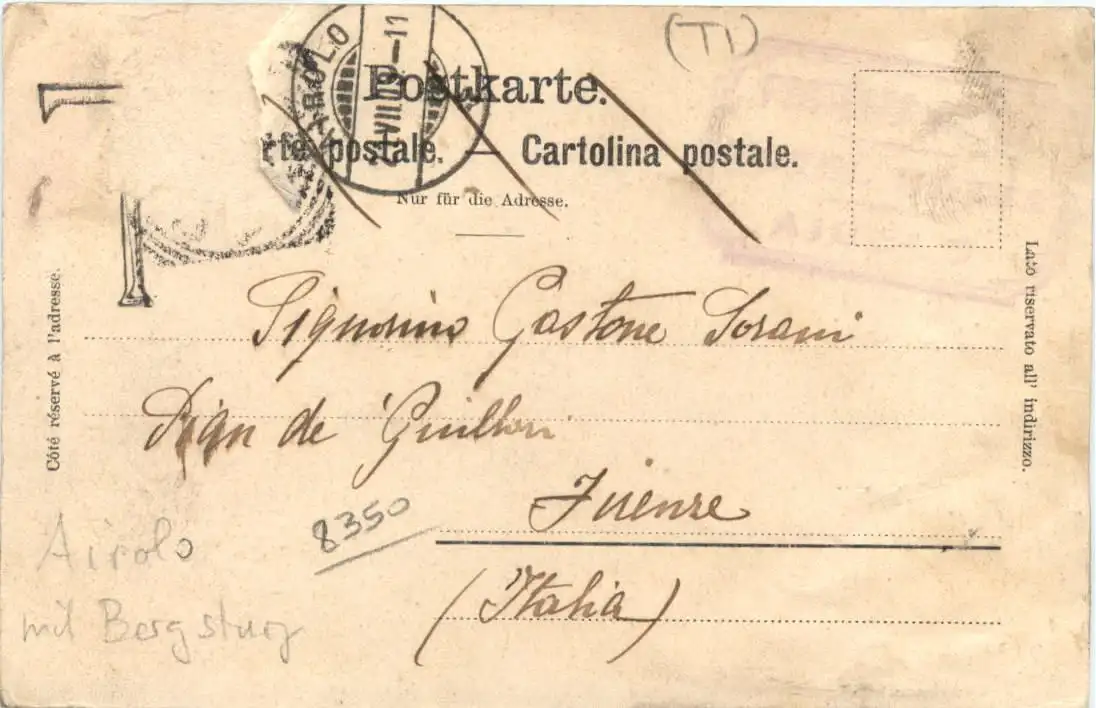 (TI)
T
AIROLO
VII 09–11
Postkarte.
rte postale. — Cartolina postale.
Nur für die Adresse.
Côté réservé à l'adresse.
Lato riservato all' indirizzo.
Signorino Gastone Sorani
de
Firenze
(Italia)
8350
Airolo
mit Bergsturz